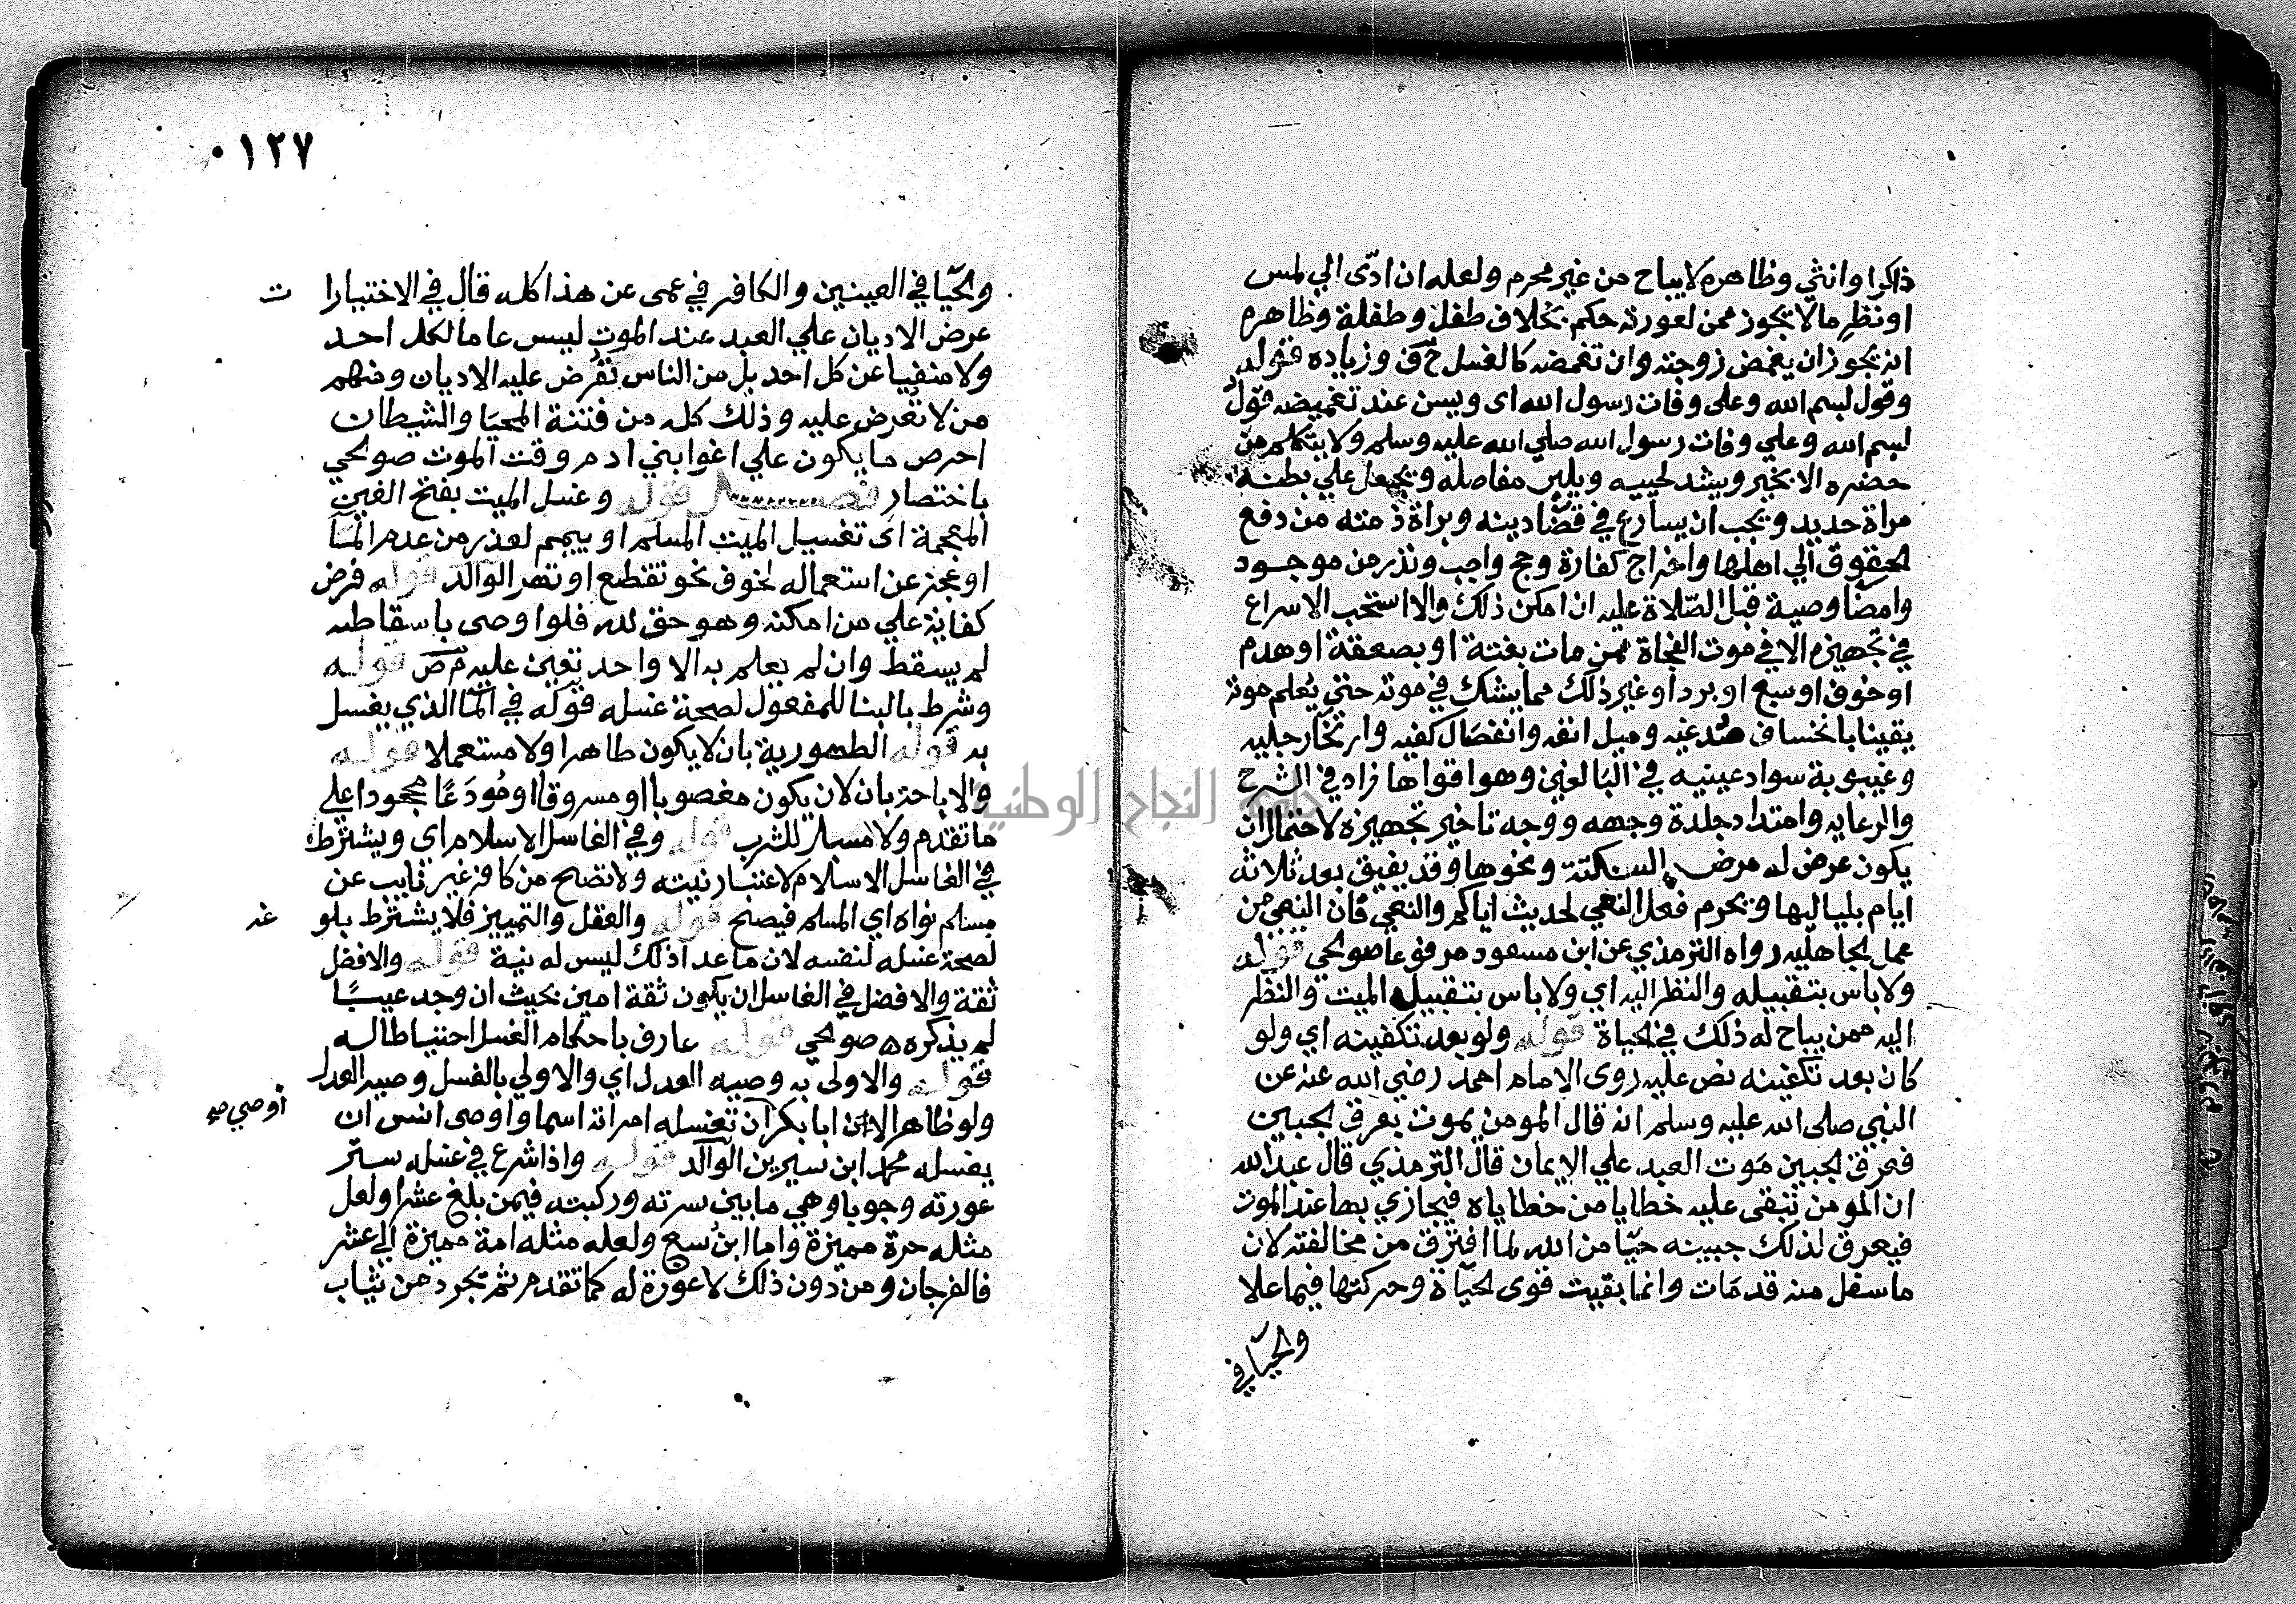 ذاكرا وانثي وظاهره لا يباح من غير محرم ولعله ان ادّى الي لمس
او نظر ما لا يجوز ممن لعورته حكم بخلاف طفل وطفلة وظاهره
انه يجوز ان يغمض زوجته وان تغمضه كالغسل وزياده قوله
وقول بسم الله وعلى وفات رسول الله اى ويسن عند تغميضه قول
بسم الله وعلي وفات رسول الله صلي الله عليه وسلم ولا يتكلم من
حضره الا بخير ويشد لحييه ويلين مفاصله ويجعل علي بطنه
مراة حديد ويجب ان يسارع في قضا دينه وبراة ذمته من دفع
الحقوق الي اهلها واخراج كفارة وحج واجب ونذر من موجود
وامضا وصية قبل الصّلاة عليه ان امكن ذلك والا استحب الاسراع
في تجهيزه الا في موت الفجاة فمن مات بغتة او بصعقة او هدم
او خوف او سبع او برد او غير ذلك مما يشك في موته حتي يُعلم موته
يقينا بانخساف صدغيه وميل انفه وانفصال كفيه وارتخا رجليه
وغيبوبة سواد عينيه في البالغين وهو اقواها زاد في الشرح
والرعايه وامتداد جلدة وجهه ووجه تاخير تجهيزه لاحتمال ان
يكون عرض له مرض السكتة ونحوها وقد يفيق بعد ثلاثة
ايام بلياليها ويحرم فعل النعي لحديث اياكم والنعي فان النعي من
عمل الجاهليه رواه الترمذي عن ابن مسعود مرفوعا صوالحي قوله
ولا باس بتقبيله والنظر اليه اي ولا باس بتقبيل الميت والنظر
اليه ممن يباح له ذلك في الحياة قوله ولو بعد تكفينه اي ولو
كان بعد تكفينه نص عليه روى الامام احمد رضي الله عنه عن
النبي صلى الله عليه وسلم انه قال المومن يموت بعرق الجبين
فعرق الجبين موت العبد علي الايمان قال الترمذي قال عبد الله
ان المومن تبقى عليه خطايا من خطاياه فيجازي بها عند الموت
فيعرق لذلك جبينه حيّا من الله لما افترق من مخالفته لان
ما سفل منه قد مات وانما بقيت قوى الحياة وحركتها فيما علا
والحيا في
٠١٢٧
والحيّا في العينين والكافر في عمى عن هذا كله قال في الاختيارا ت
عرض الاديان علي العبد عند الموت ليس عاما لكل احد
ولا منفيا عن كل احد بل من الناس تعرض عليه الاديان ومنهم
من لا تعرض عليه وذلك كله من فتنة المحيا والشيطان
احرص ما يكون علي اغوا بني ادم وقت الموت صوالحي
باختصار فصل قوله وغسل الميت بفتح الغين
المعجمة اى تغسيل الميت المسلم او ييمم لعذر من عدم الما
او عجز عن استعماله لخوف نحو تقطع او تهر الوالد قوله فرض
كفاية علي من امكنه وهو حق لله فلو اوصى باسقاطه
لم يسقط وان لم يعلم به الا واحد تعين عليه م ص قوله
وشرط بالبنا للمفعول لصحة غسله قوله في الما الذي يغسل
به قوله الطهورية بان لا يكون طاهرا ولا مستعملا قوله
والاباحة بان لا يكون مغصوبا او مسروقا او مُودَعًا مجحودا علي
ما تقدم ولا مسبل للشرب قوله وفي الغاسل الاسلام اي ويشترط
في الغاسل الاسلام لاعتبار نيته ولا تصح من كافر غير نايب عن
مسلم نواه اي المسلم فيصح قوله والعقل والتمييز فلا يشترط بلو غه
لصحة غسله لنفسه لان ما عدا ذلك ليس له نية قوله والافضل
ثقة والافضل في الغاسل ان يكون ثقة امين بحيث ان وجد عيبًا
لم يذكره صوالحي قوله عارف باحكام الغسل احتياطا له
قوله والاولى به وصيه العدل اي والاولي بالغسل وصيه العدل
ولو ظاهرا لان ابا بكر ان تغسله امراته اسما واوصى انس ان
اوصي صح
يغسله محمد ابن سيرين الوالد قوله واذا شرع في غسله ستر
عورته وجوبا وهي ما بين سرته وركبته فيمن بلغ عشرا ولعل
مثله حرة مميزة واما ابن سبع ولعله مثله امة مميزة الي عشر
فالفرجان ومن دون ذلك لا عورة له كما تقدم ثم تجرد من ثياب
جامعة النجاح الوطنية